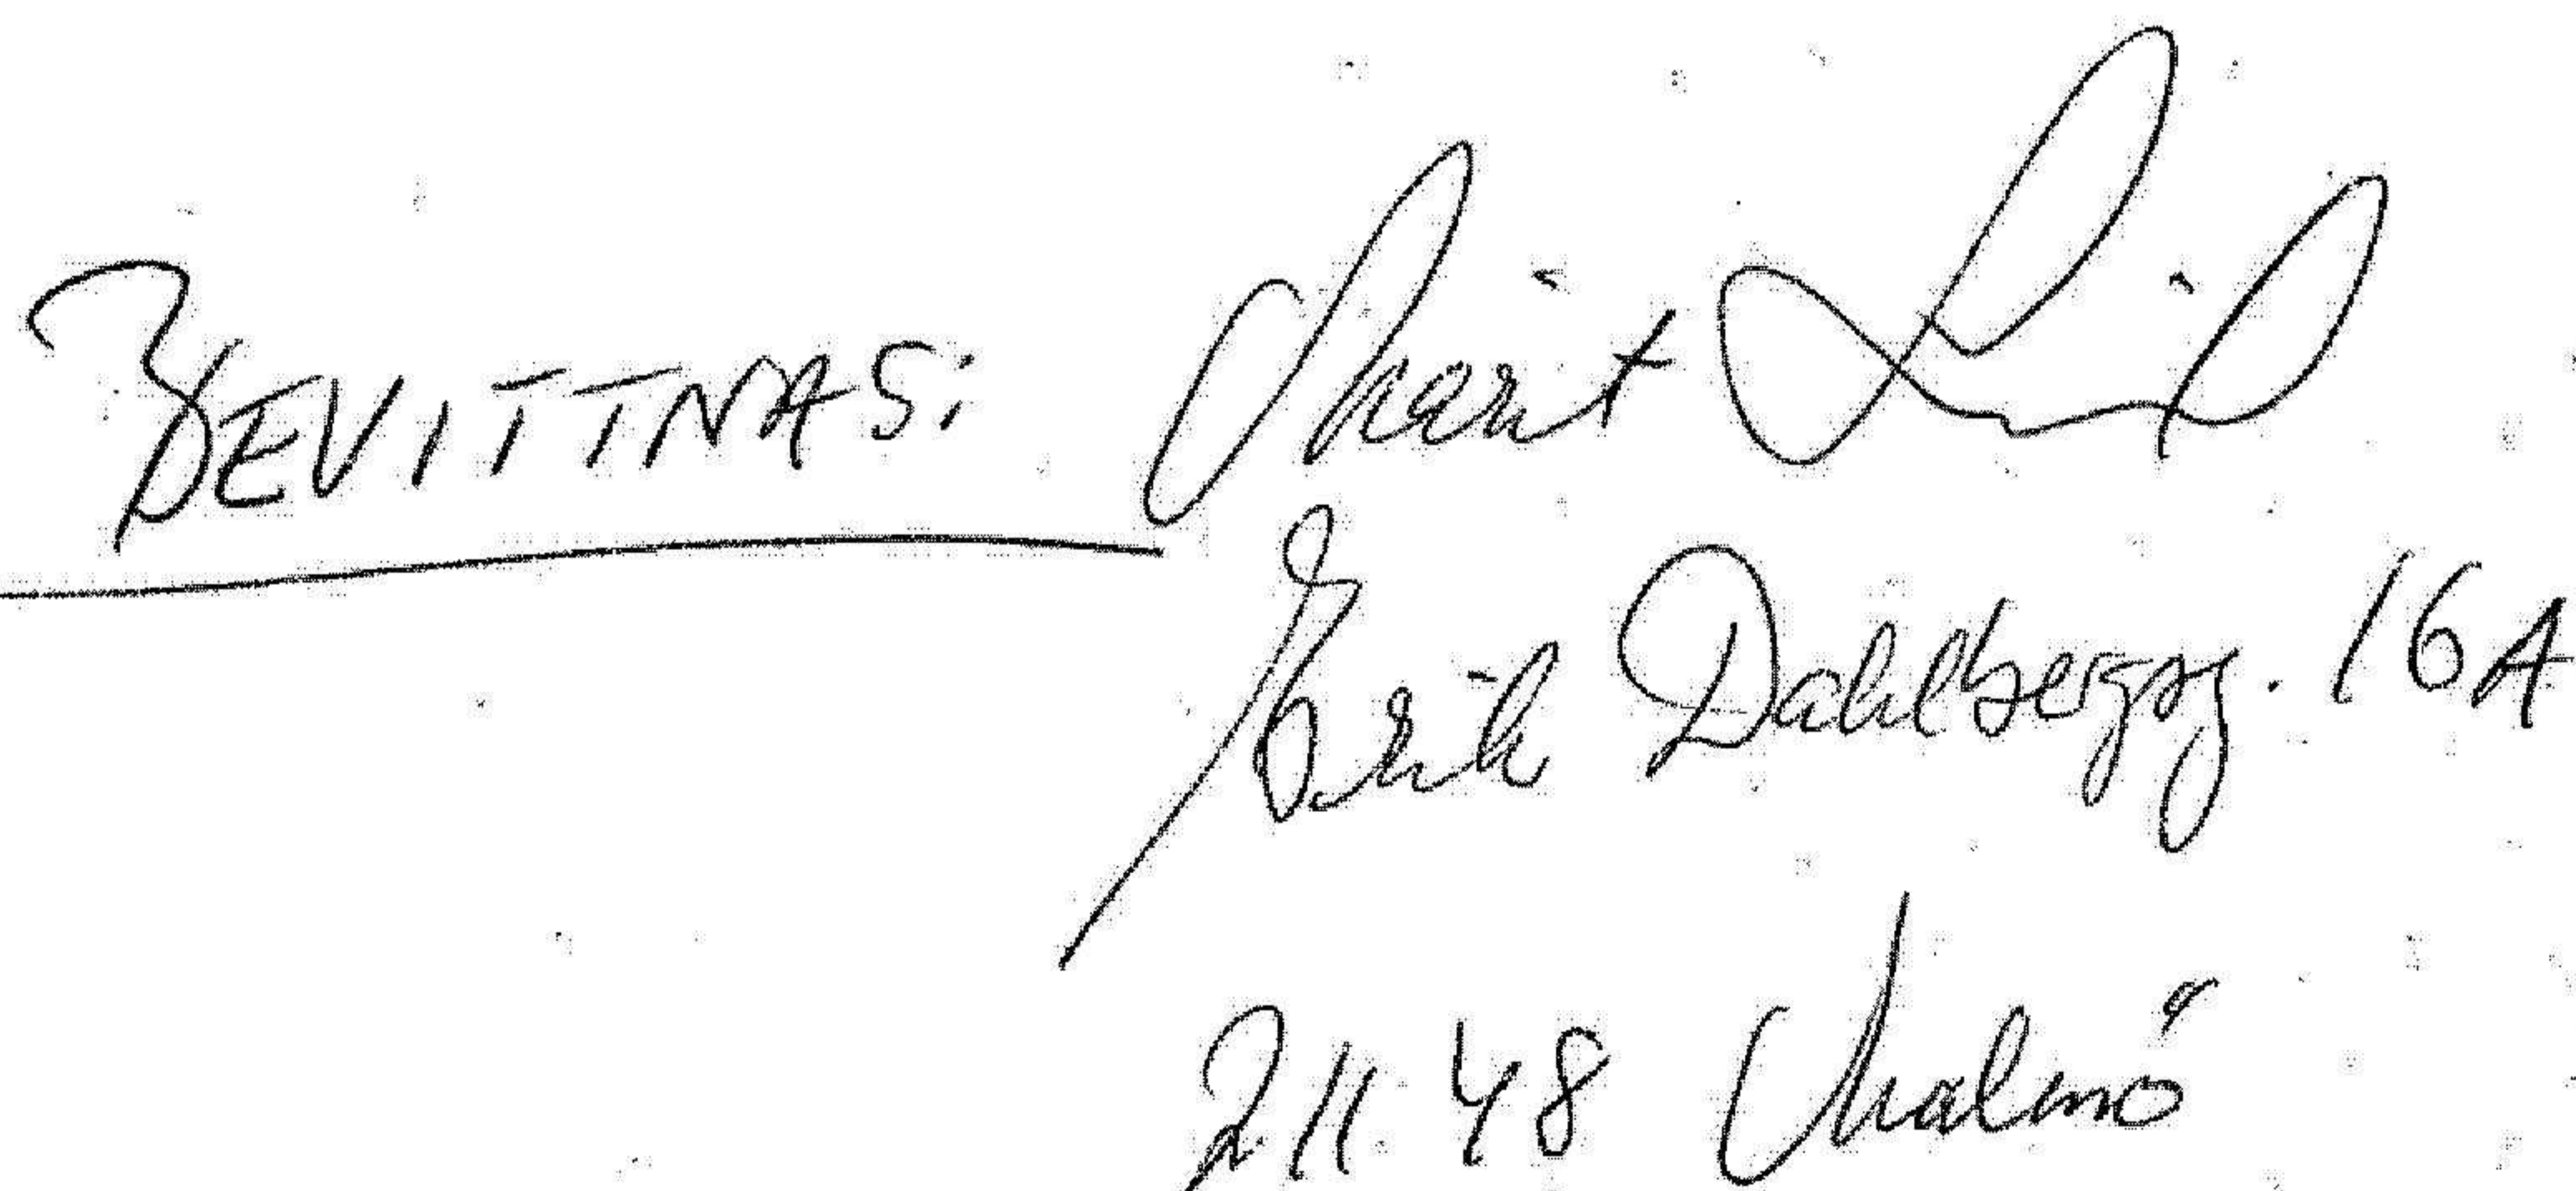 BEVITTNAS: Marit Lind
Erik Dahlbergsg. 16A
211 48 Malmö